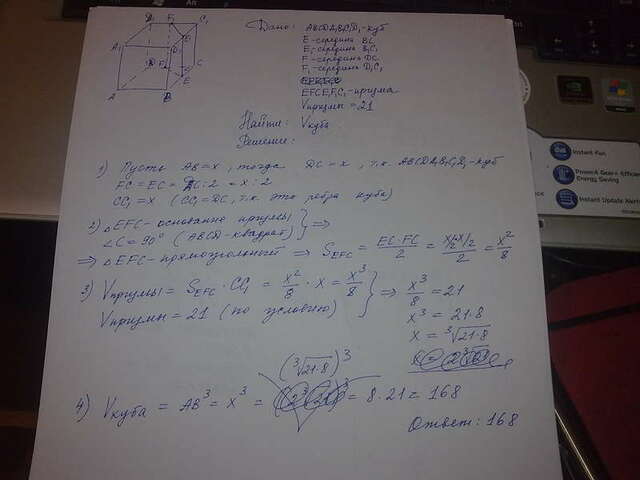 Дано: ABCDA₁B₁C₁D₁ - куб
E - середина BC
E₁ - середина B₁C₁
F - середина DC
F₁ - середина D₁C₁
EFCE₁F₁C₁ - призма
Vпризмы = 21
Найти: Vкуба
Решение:
A₁ D₁ F₁ C₁
A B E C
1) Пусть AB = x, тогда DC = x, т.к. ABCDA₁B₁C₁D₁ - куб
FC = EC = DC : 2 = x : 2
CC₁ = x (CC₁ = DC, т.к. это ребра куба)
2) △EFC - основание призмы
∠C = 90° (ABCD - квадрат) } ⇒
⇒ △EFC - прямоугольный ⇒ S EFC = EC·FC/2 = x/2·x/2/2 = x²/8
3) Vпризмы = S EFC · CC₁ = x²/8 · x = x³/8
Vпризмы = 21 (по условию) } ⇒ x³/8 = 21
x³ = 21·8
x = ³√21·8
(³√21·8)³
4) Vкуба = AB³ = x³ = = 8·21 = 168
Ответ: 168
Instant Fun
Power4 Gear+ Efficient
Energy Saving
Instant Update Alert
NVIDIA